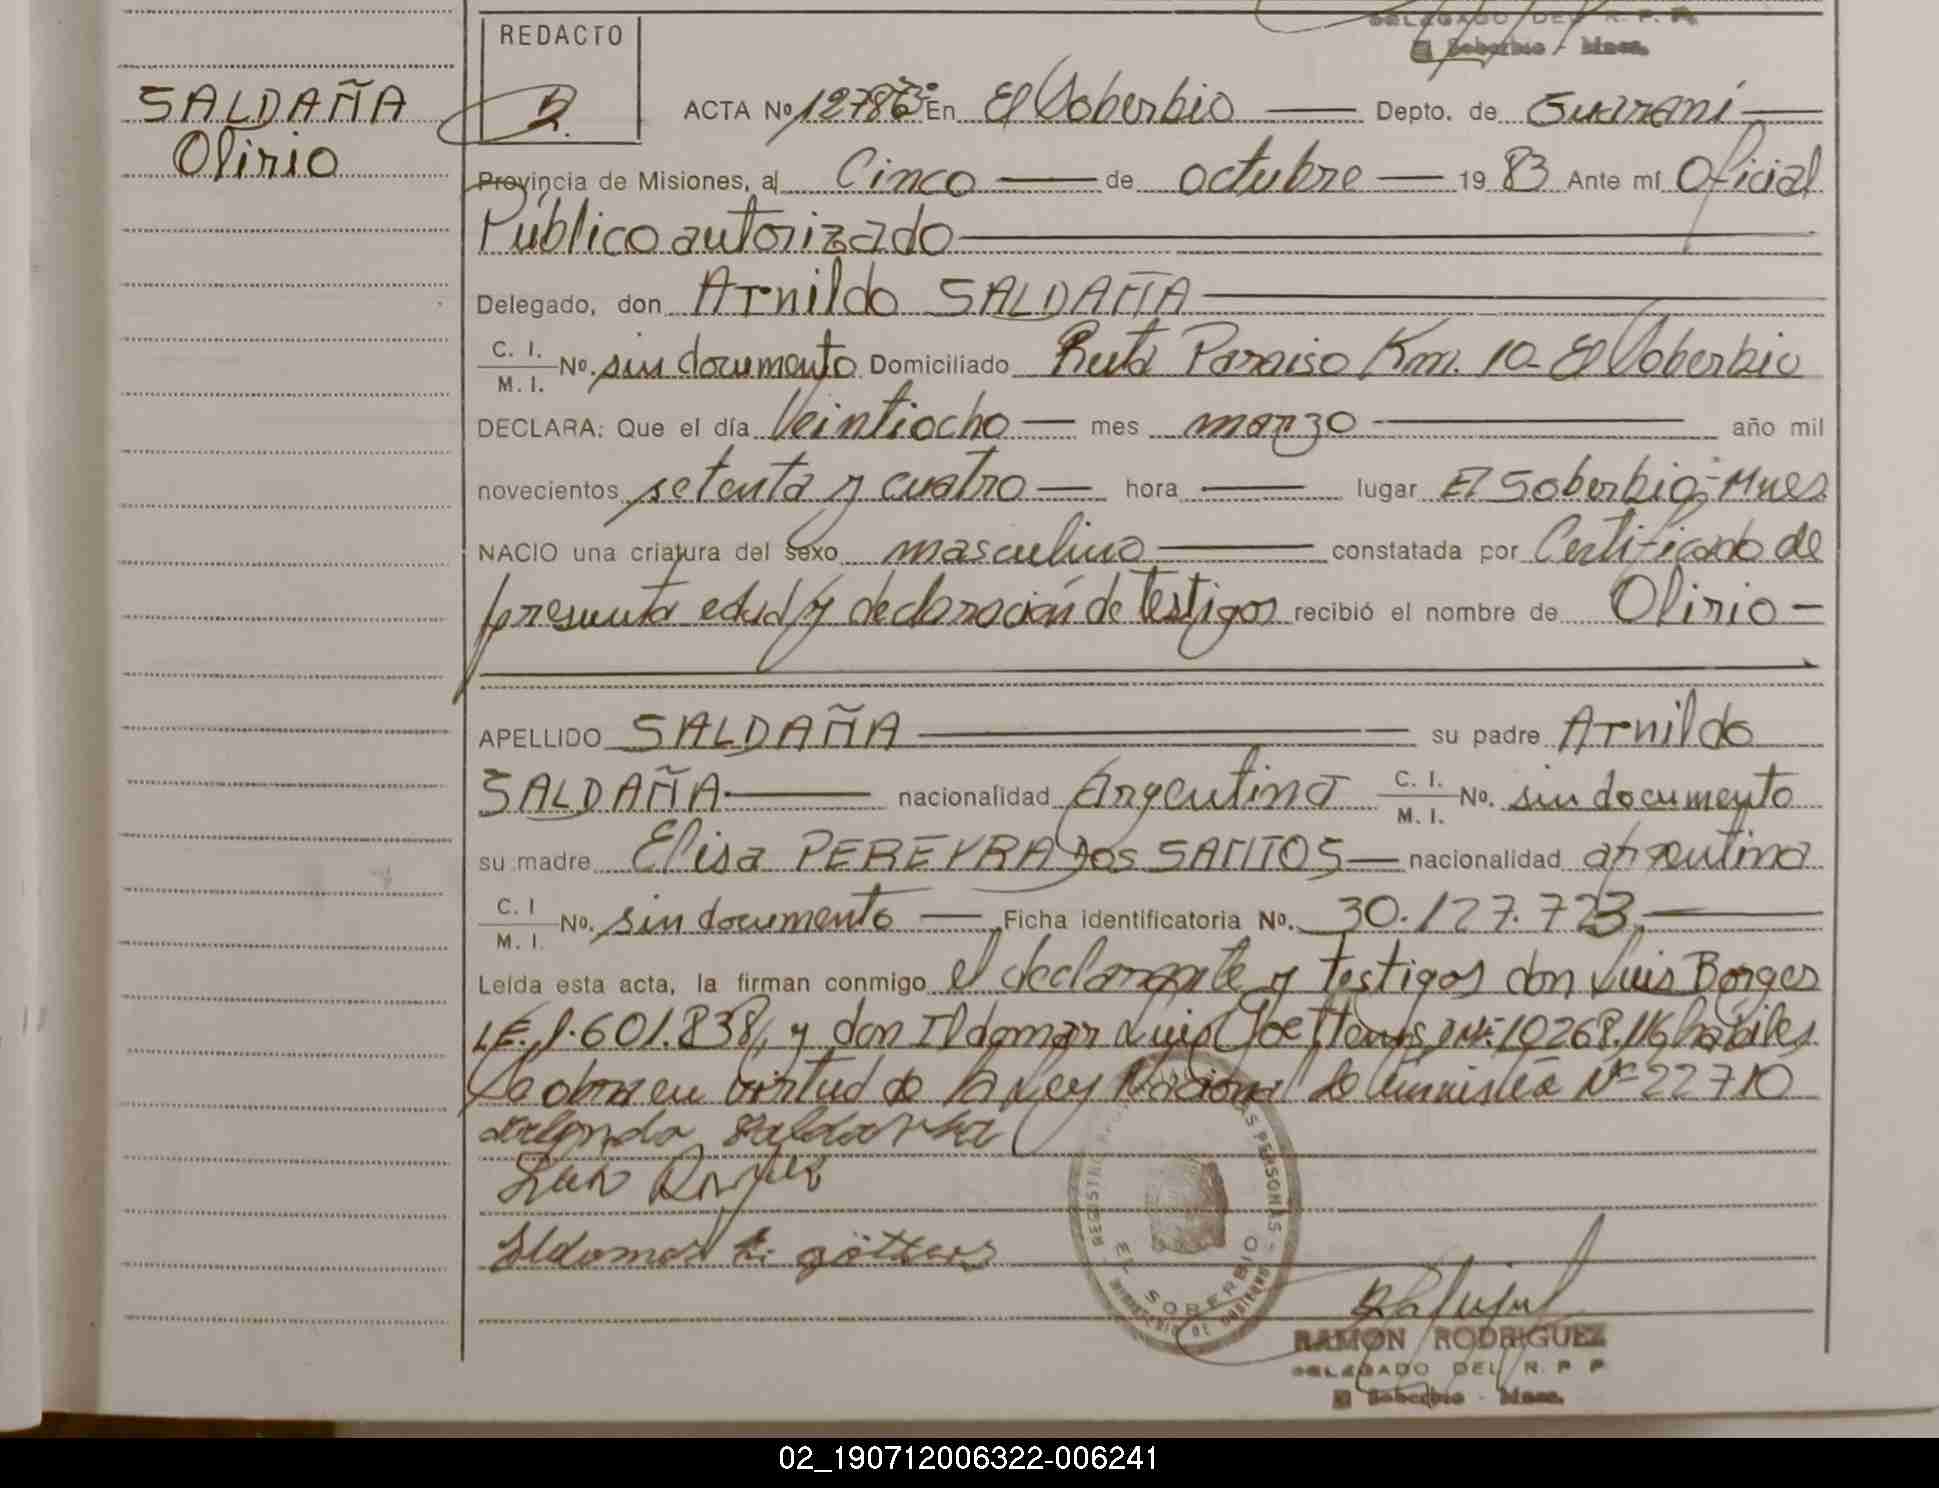 DELEGADO DEL R. P. P.
El Soberbio - Mnes.
REDACTO
SALDAÑA
Olirio
R.
ACTA Nº 12786 En El Soberbio Depto. de Guaraní
Provincia de Misiones, al Cinco de octubre 19 83 Ante mí Oficial
Público autorizado
Delegado, don Arnildo SALDAÑA
C. I. M. I. Nº. sin documento Domiciliado Ruta Paraiso Km. 10 - El Soberbio
DECLARA: Que el día Veintiocho mes marzo año mil
novecientos setenta y cuatro hora lugar El Soberbio, Mnes
NACIO una criatura del sexo masculino constatada por Certificado de
presunta edad y declaración de testigos recibió el nombre de Olirio
APELLIDO SALDAÑA su padre Arnildo
SALDAÑA nacionalidad Argentina C. I. M. I. Nº. sin documento
su madre Elisa PEREYRA DOS SANTOS nacionalidad argentina
C. I M. I. Nº. sin documento Ficha identificatoria Nº. 30.127.723
Leída esta acta, la firman conmigo el declarante y testigos don Luis Borges
L.E. 1.601.838, y don Ildomar Luis Goettems 10268.116 hábiles
labrase en virtud de la Ley Nacional de amnistía Nº 22710
Saldanha
Luis Borges
Ildomar L. göttems
REGISTRO PERSONAS
EL SOBERBIO
RAMON RODRIGUEZ
DELEGADO DEL R. P. P
El Soberbio - Mnes.
02_190712006322-006241